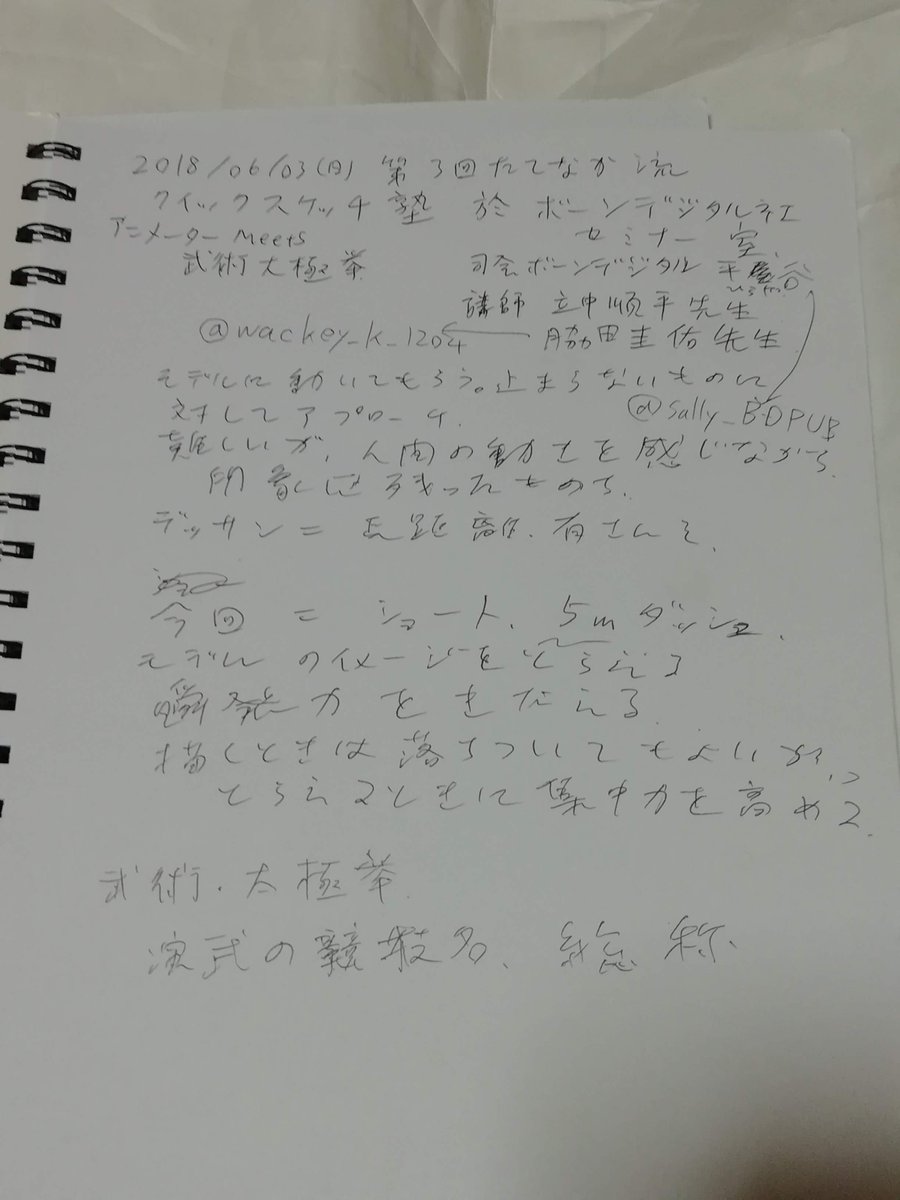 2018/06/03(日) 第3回たてなか流
クイックスケッチ塾 於 ボーンデジタル社
アニメーター Meets セミナー室、
武術太極拳 司会ボーンデジタル 平谷
講師 立中順平先生
@wackey_k_1204 ← 脇田圭佑先生
モデルに動いてもらう。止まらないものに
対してアプローチ. @sally_BDPUB
難しいが、人間の動きを感じながら、
印象に残ったものを、
デッサン = 長距離、有さんそ、
今回 = ショート、5mダッシュ、
モデルのイメージをとらえる
瞬発力をきたえる
描くときは落ちついてもよいが、
とらえるときに集中力を高める.
武術・太極拳
演武の競技名、総称、